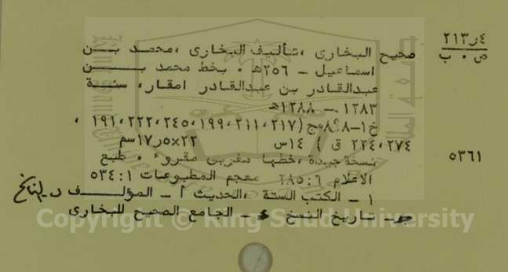 ٢١٣٫٤
ص ٠ ب
صحيح البخارى ،تأليف البخارى ،محمد بن
اسماعيل – ٢٥٦هـ ٠ بخط محمد بن
عبدالقادر بن عبدالقادر امقار، سنة
١٢٨٣ – ١٢٨٨هـ
٢٢٤،٢٧٤ ق ) ١٤س ٢٢×١٧٫٥سم
٥٣٦١
نسخة جيدة ،خطها مغربى مقروء ٠ طبع
الاعلام ٦ : ٢٨٥ معجم المطبوعات ١ : ٥٣٤
١ – الكتب الستة ،الحديث أ – المؤلف ب الناسخ
جـ – تاريخ النسخ ء – الجامع الصحيح للبخارى
Copyright © King Saud University